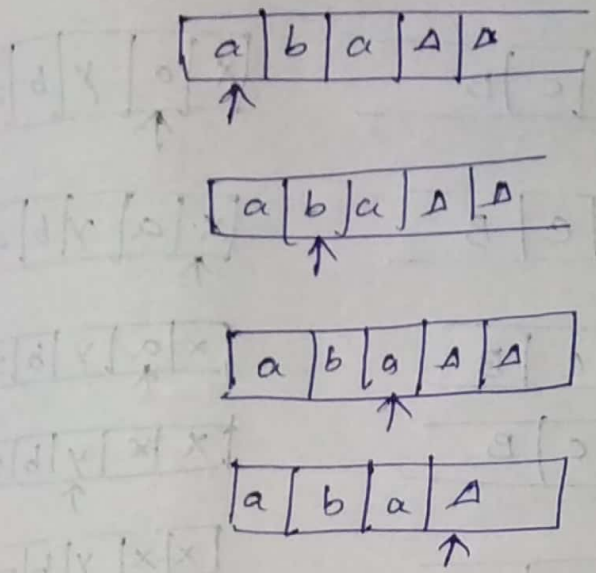 a b a Δ Δ
a b a Δ Δ
a b a Δ Δ
a b a Δ